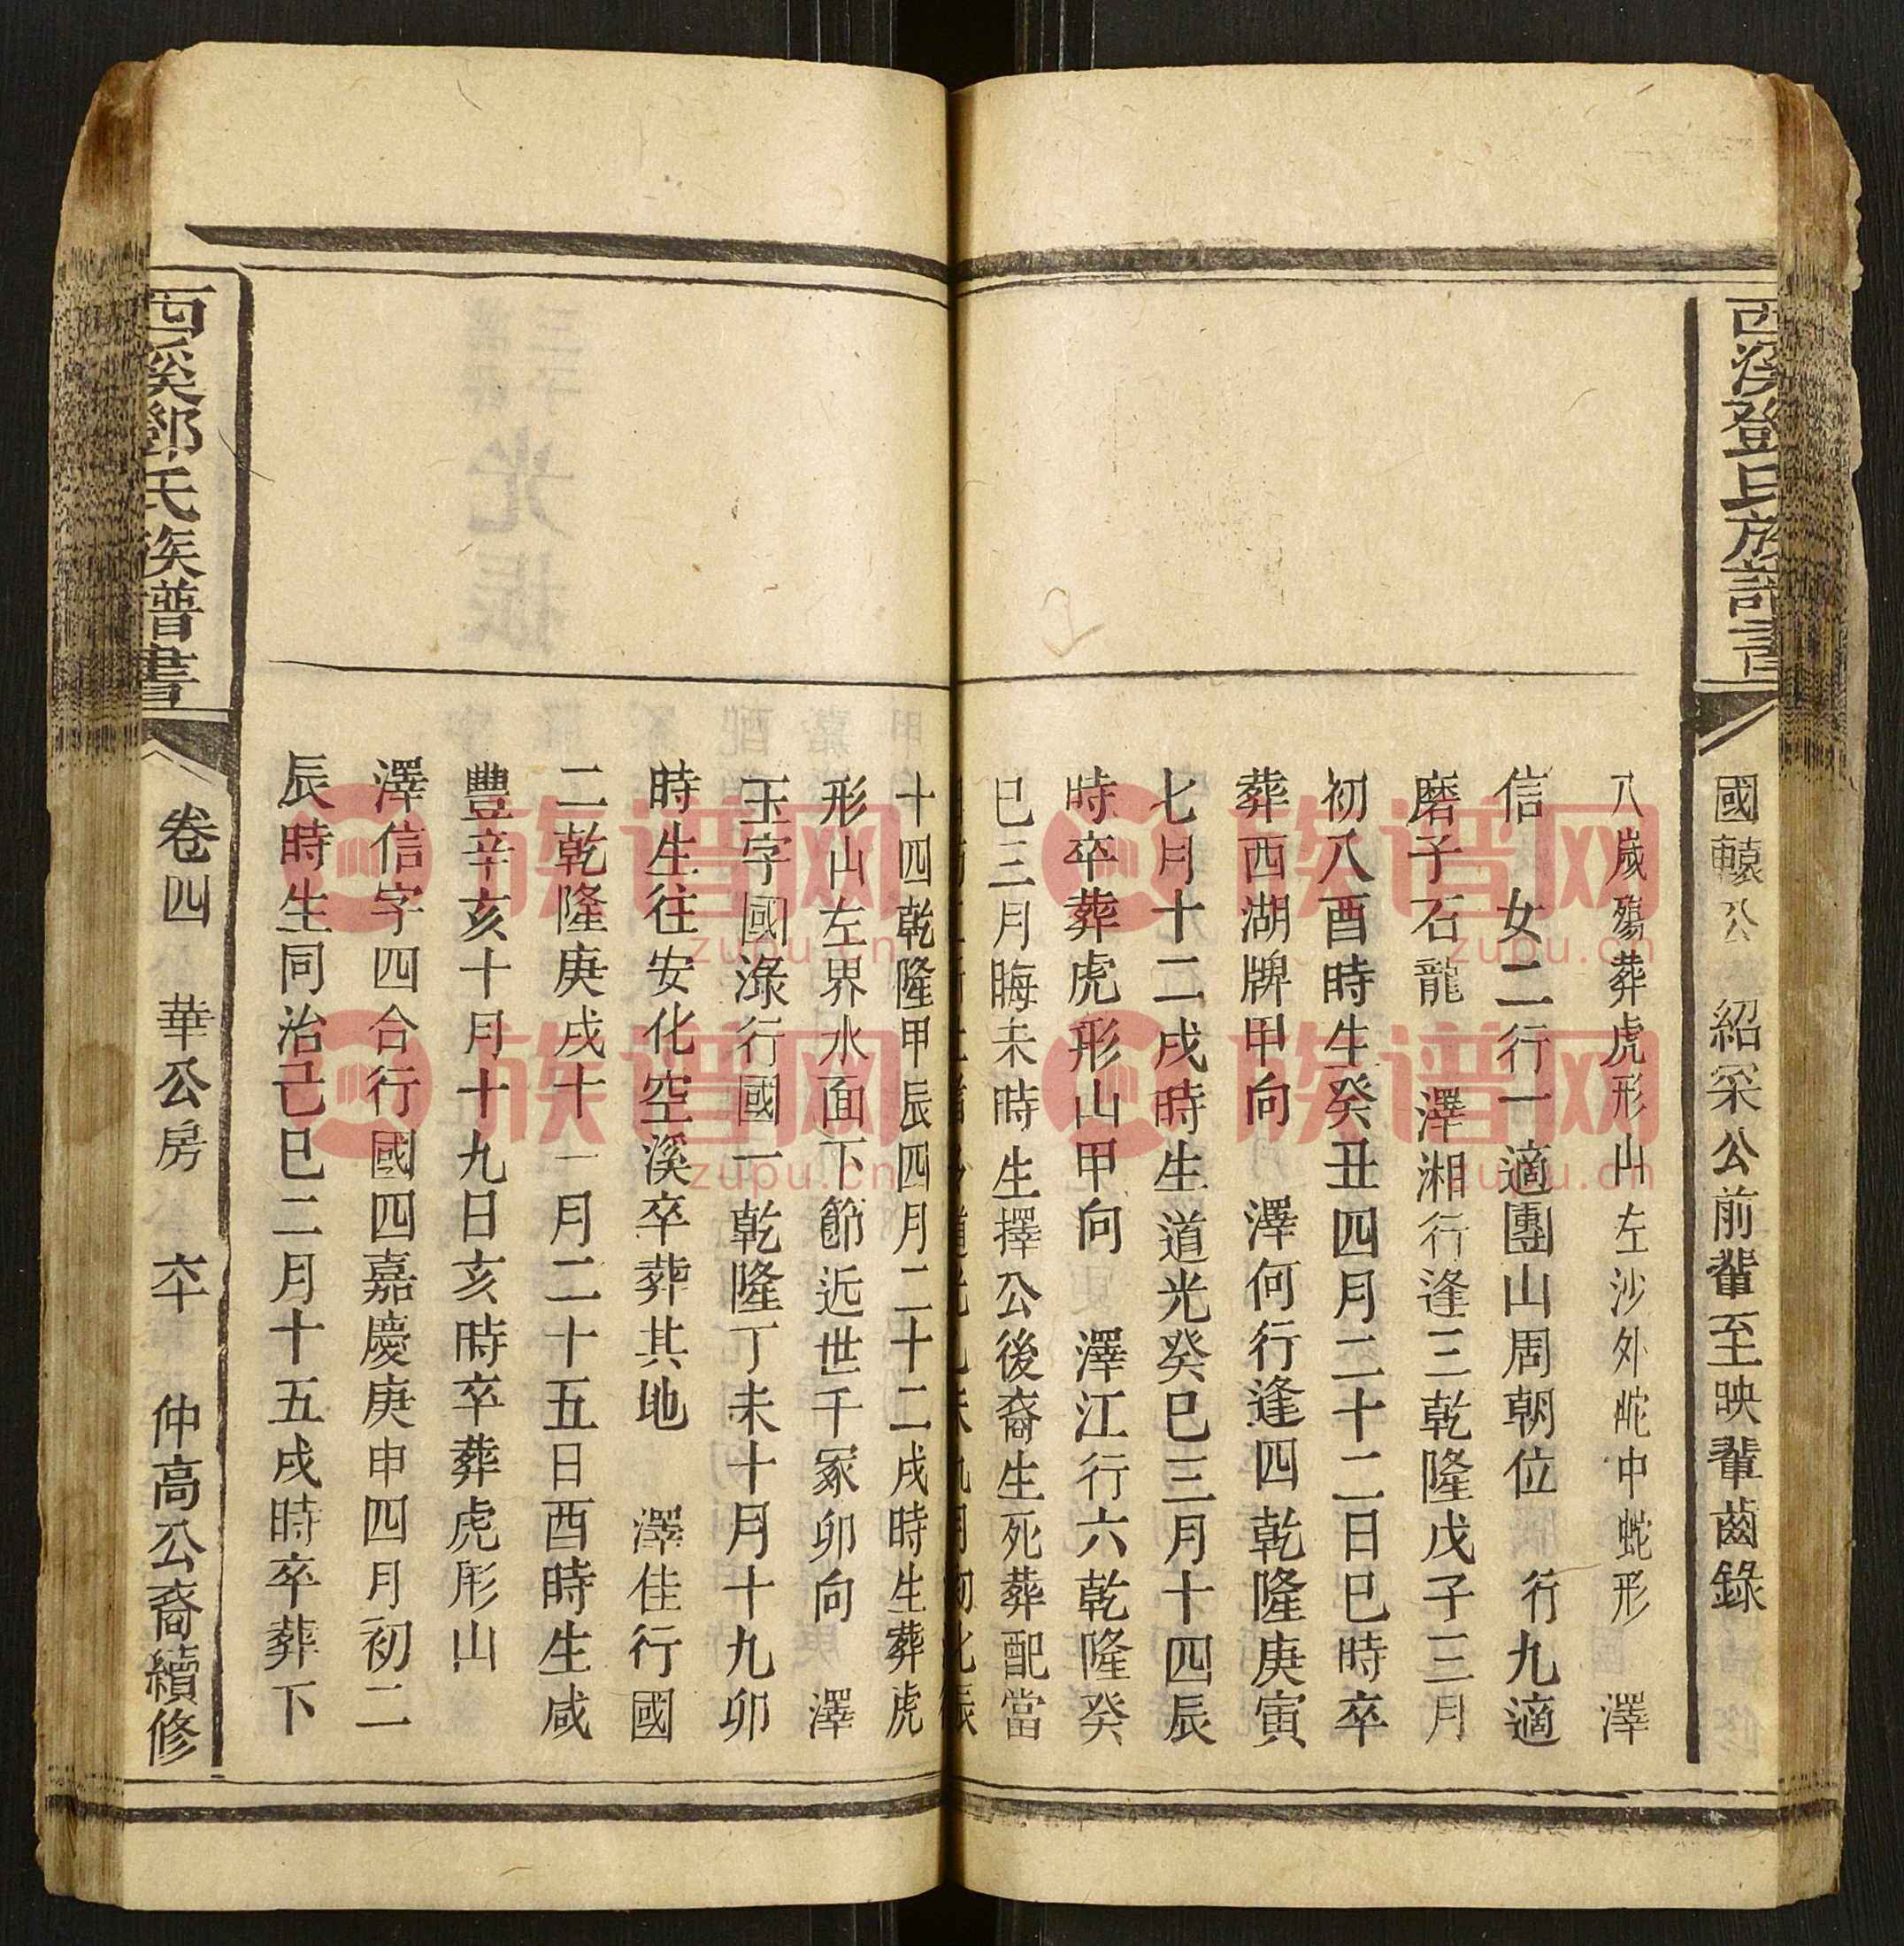 西溪鄧氏族譜書
國轅公 紹宷公前輩至映輩齒錄
八歲殤葬虎形山左沙外𡶇中蛇形 澤
信 女二行一適團山周朝位 行九適
磨子石龍 澤湘行逢三乾隆戊子三月
初八酉時生癸丑四月二十二日巳時卒
葬西湖牌甲向 澤何行逢四乾隆庚寅
七月十二戌時生道光癸巳三月十四辰
時卒葬虎形山甲向 澤江行六乾隆癸
巳三月晦未時生擇公後裔生死葬配當
十四乾隆甲辰四月二十二戌時生葬虎
形山左界水面下節近世千冢卯向 澤
玉字國淥行國一乾隆丁未十月十九卯
時生往安化空溪卒葬其地 澤佳行國
二乾隆庚戌十一月二十五日酉時生咸
豐辛亥十月十九日亥時卒葬虎形山
澤信字四合行國四嘉慶庚申四月初二
辰時生同治己巳二月十五戌時卒葬下
西溪鄧氏族譜書
卷四 華公房 仲高公裔續修
族谱网
zupu.cn
族谱网
zupu.cn
族谱网
zupu.cn
族谱网
zupu.cn